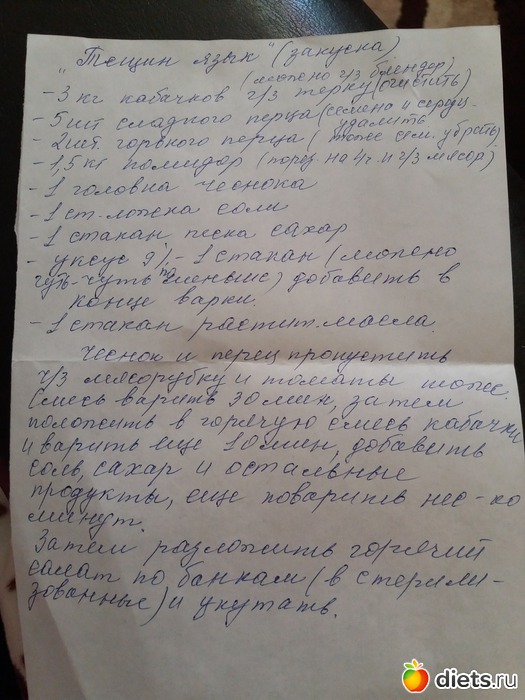 "Тещин язык" (закуска)
(можно ч/з блендер)
- 3 кг кабачков ч/з терку (очистить)
- 5 шт сладкого перца (семена и сердц. удалить
- 2 шт. горького перца (тоже сем. убрать)
- 1,5 кг помидор (порез. на 4ч. и ч/з мясор)
- 1 головка чеснока
- 1 ст. ложка соли
- 1 стакан песка сахар
- уксус 9% - 1 стакан (можно
чуть-чуть поменьше) добавить в
конце варки.
- 1 стакан растит. масла.
Чеснок и перец пропустить
ч/з мясорубку и томаты тоже.
Смесь варить 30 мин, затем
положить в горячую смесь кабачки
и варить еще 10 мин, добавить
соль, сахар и остальные
продукты, еще поварить нес-ко
минут.
Затем разложить горячий
салат по банкам (в стерили-
зованные) и укутать.
diets.ru